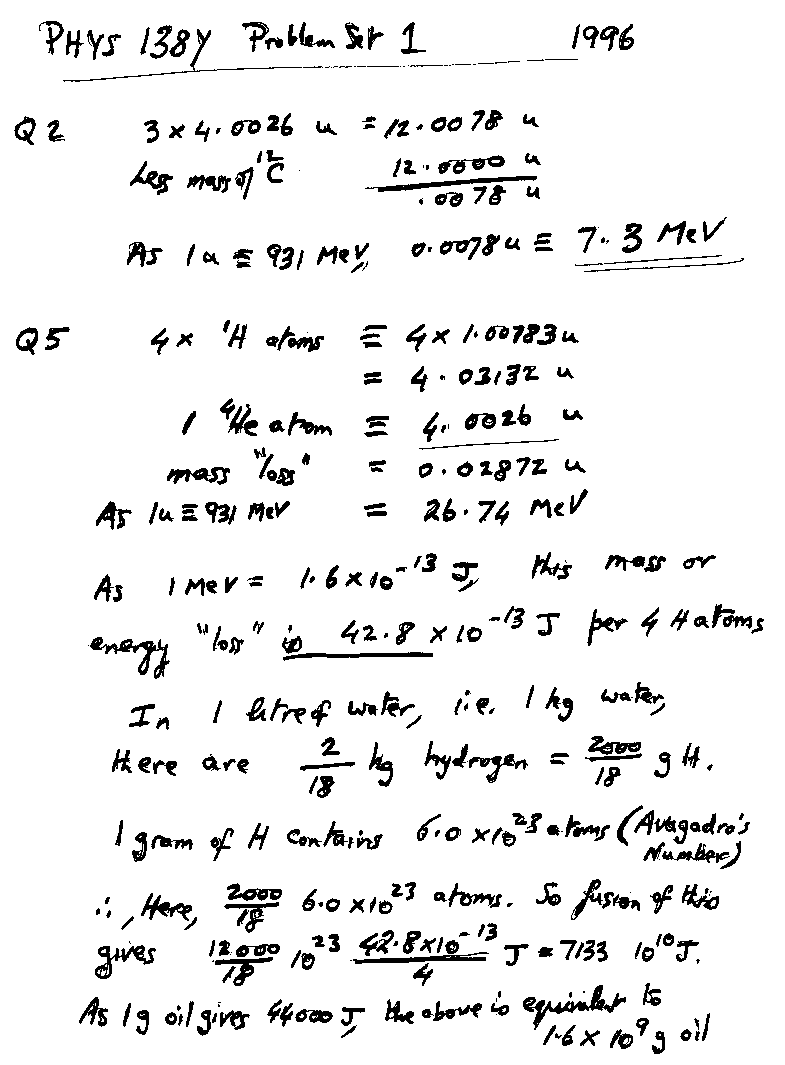 PHYS 138Y Problem Set 1 1996
Q2 3 × 4.0026 u = 12.0078 u
Less mass of ¹²C 12.0000 u
.0078 u
As 1u ≡ 931 MeV, 0.0078u ≡ 7.3 MeV
Q5 4 × ¹H atoms ≡ 4 × 1.00783u
= 4.03132 u
1 ⁴He atom ≡ 4.0026 u
mass "loss" = 0.02872 u
As 1u ≡ 931 MeV = 26.74 MeV
As 1 MeV = 1.6 × 10⁻¹³ J, this mass or
energy "loss" is 42.8 × 10⁻¹³ J per 4 H atoms
In 1 litre of water, i.e. 1 kg water,
there are 2/18 kg hydrogen = 2000/18 g H.
1 gram of H contains 6.0 × 10²³ atoms (Avagadro's
Number)
∴, Here, 2000/18 6.0 × 10²³ atoms. So fusion of this
gives 12000/18 10²³ 42.8×10⁻¹³/4 J = 7133 10¹⁰ J.
As 1g oil gives 44000 J, the above is equivalent to
1.6 × 10⁹ g oil